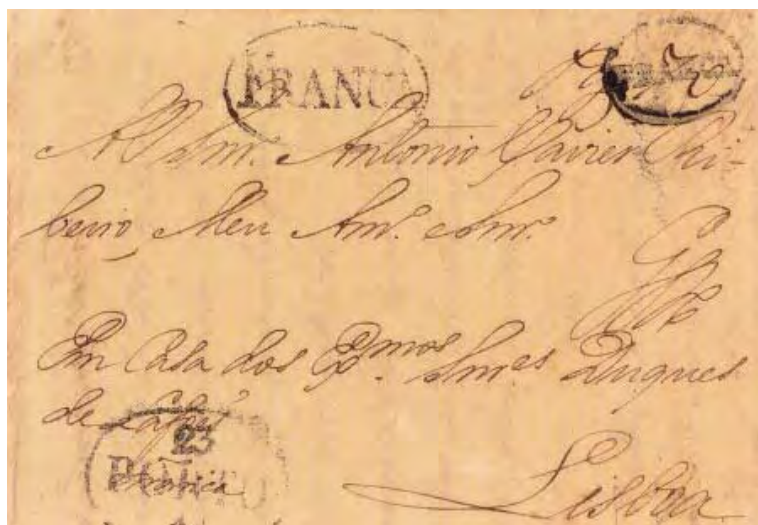 FRANCA
FRANCA
Antonio Xavier Ri-
beiro, Meu Am.º e Snr.
Em Casa dos Ex.mos Snr.es Duques
de Lafões
23
PORTO
Lisboa